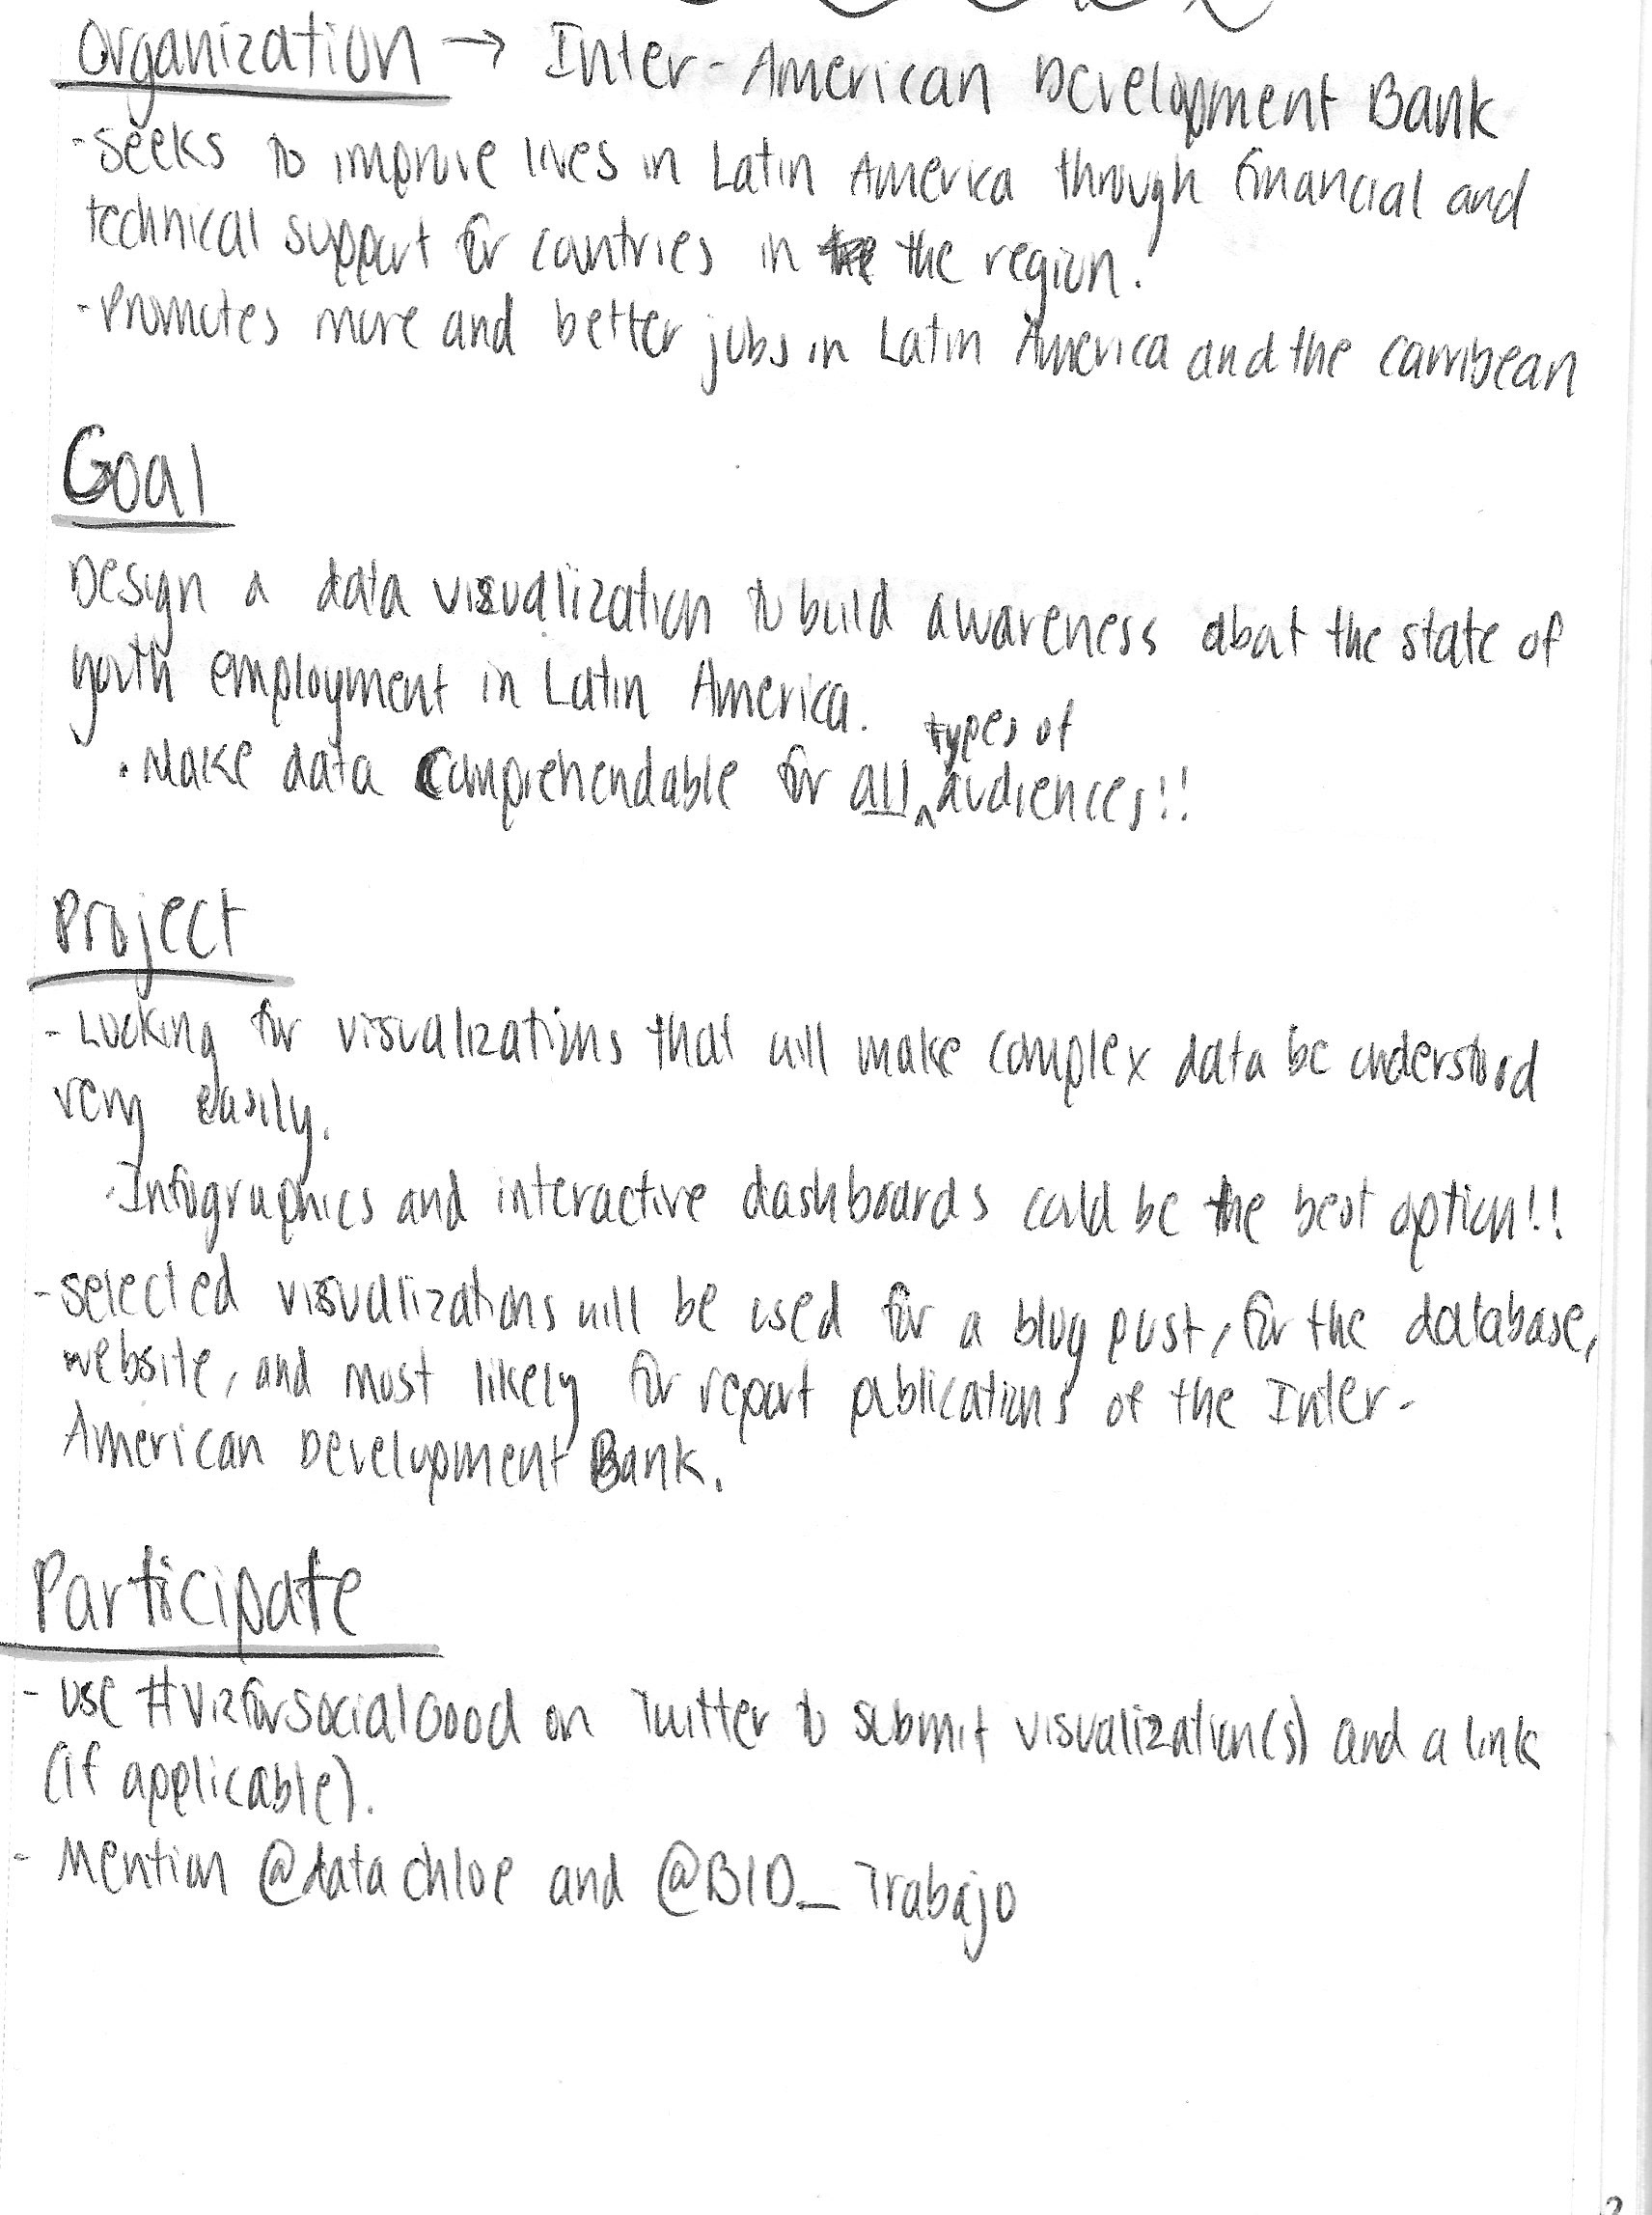 Organization → Inter-American Development Bank
-seeks to improve lives in Latin America through financial and
technical support for countries in the the region.
-Promotes more and better jobs in Latin America and the carribean
Goal
Design a data visualization to build awareness about the state of
youth employment in Latin America.
types of
• Make data comprehendable for all ^ audiences!!
Project
- Looking for visualizations that will make complex data be understood
very easily.
·Infographics and interactive dashboards could be the best option!!
-selected visualizations will be used for a blog post, for the database,
website, and most likely for report publications of the Inter-
American Development Bank.
Participate
- use #VizforSocialGood on Twitter to submit visualization(s) and a link
(if applicable).
- Mention @datachloe and @BID_Trabajo